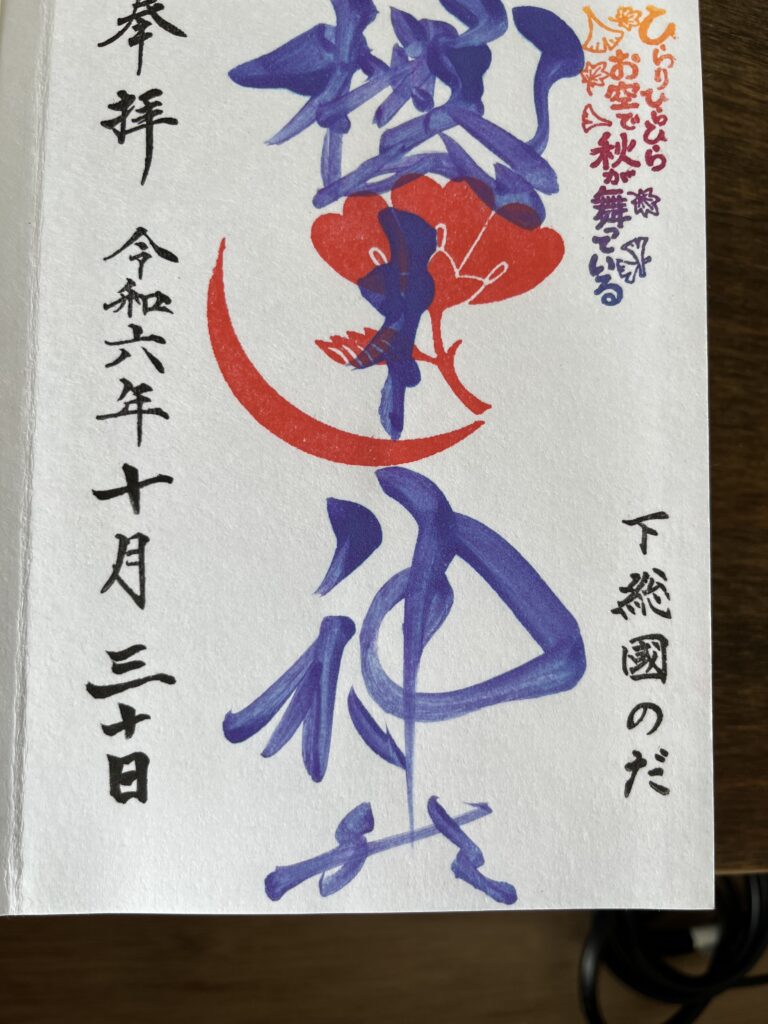 ひらりひらひら
お空で秋が舞っている
下総國のだ
櫻木神社
奉拝 令和六年十月三十日